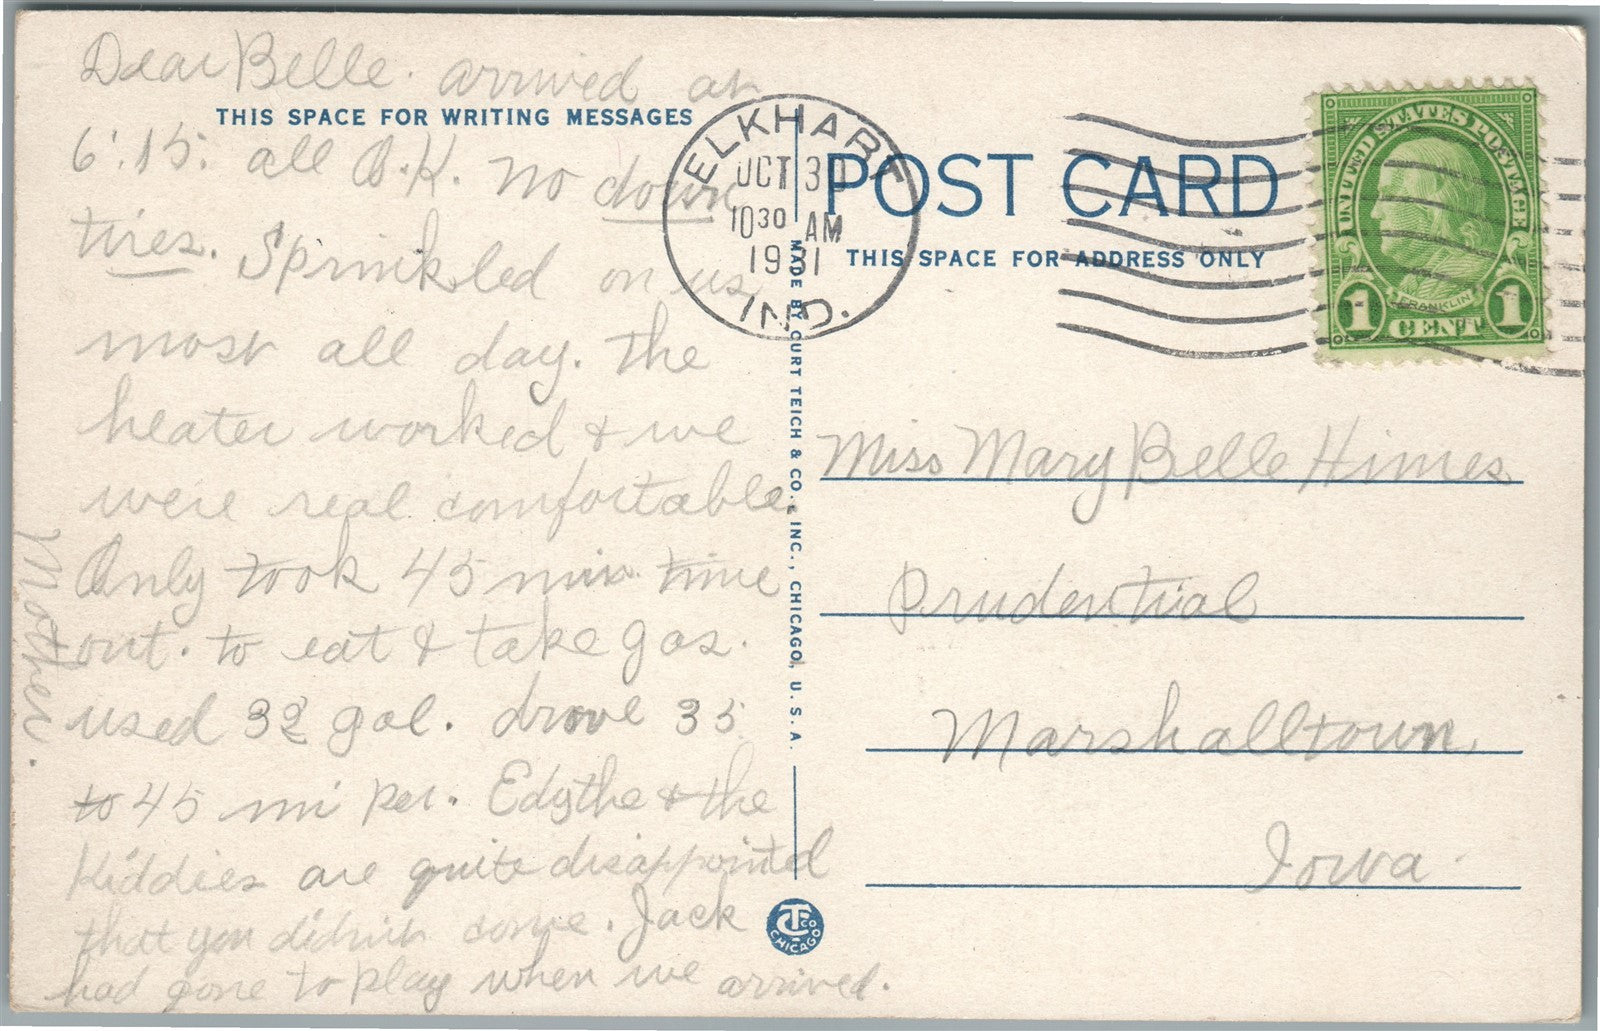 Dear Belle. arrived at
THIS SPACE FOR WRITING MESSAGES
6:15. all O.K. no down
tires. Sprinkled on us
most all day. the
heater worked & we
were real comfortable.
Only took 45 min. time
out. to eat & take gas.
used 32 gal. drove 35
to 45 mi per. Edythe & the
Kiddies are quite disappointed
that you didnt come. Jack
had gone to play when we arrived.
Mother.
ELKHART
OCT 30
10 30 AM
1931
IND.
MADE BY CURT TEICH & CO., INC., CHICAGO, U.S.A.
CT CO
CHICAGO
POST CARD
THIS SPACE FOR ADDRESS ONLY
UNITED STATES POSTAGE
FRANKLIN
1 CENT 1
Miss Mary Belle Himes
Prudential
Marshalltown
Iowa